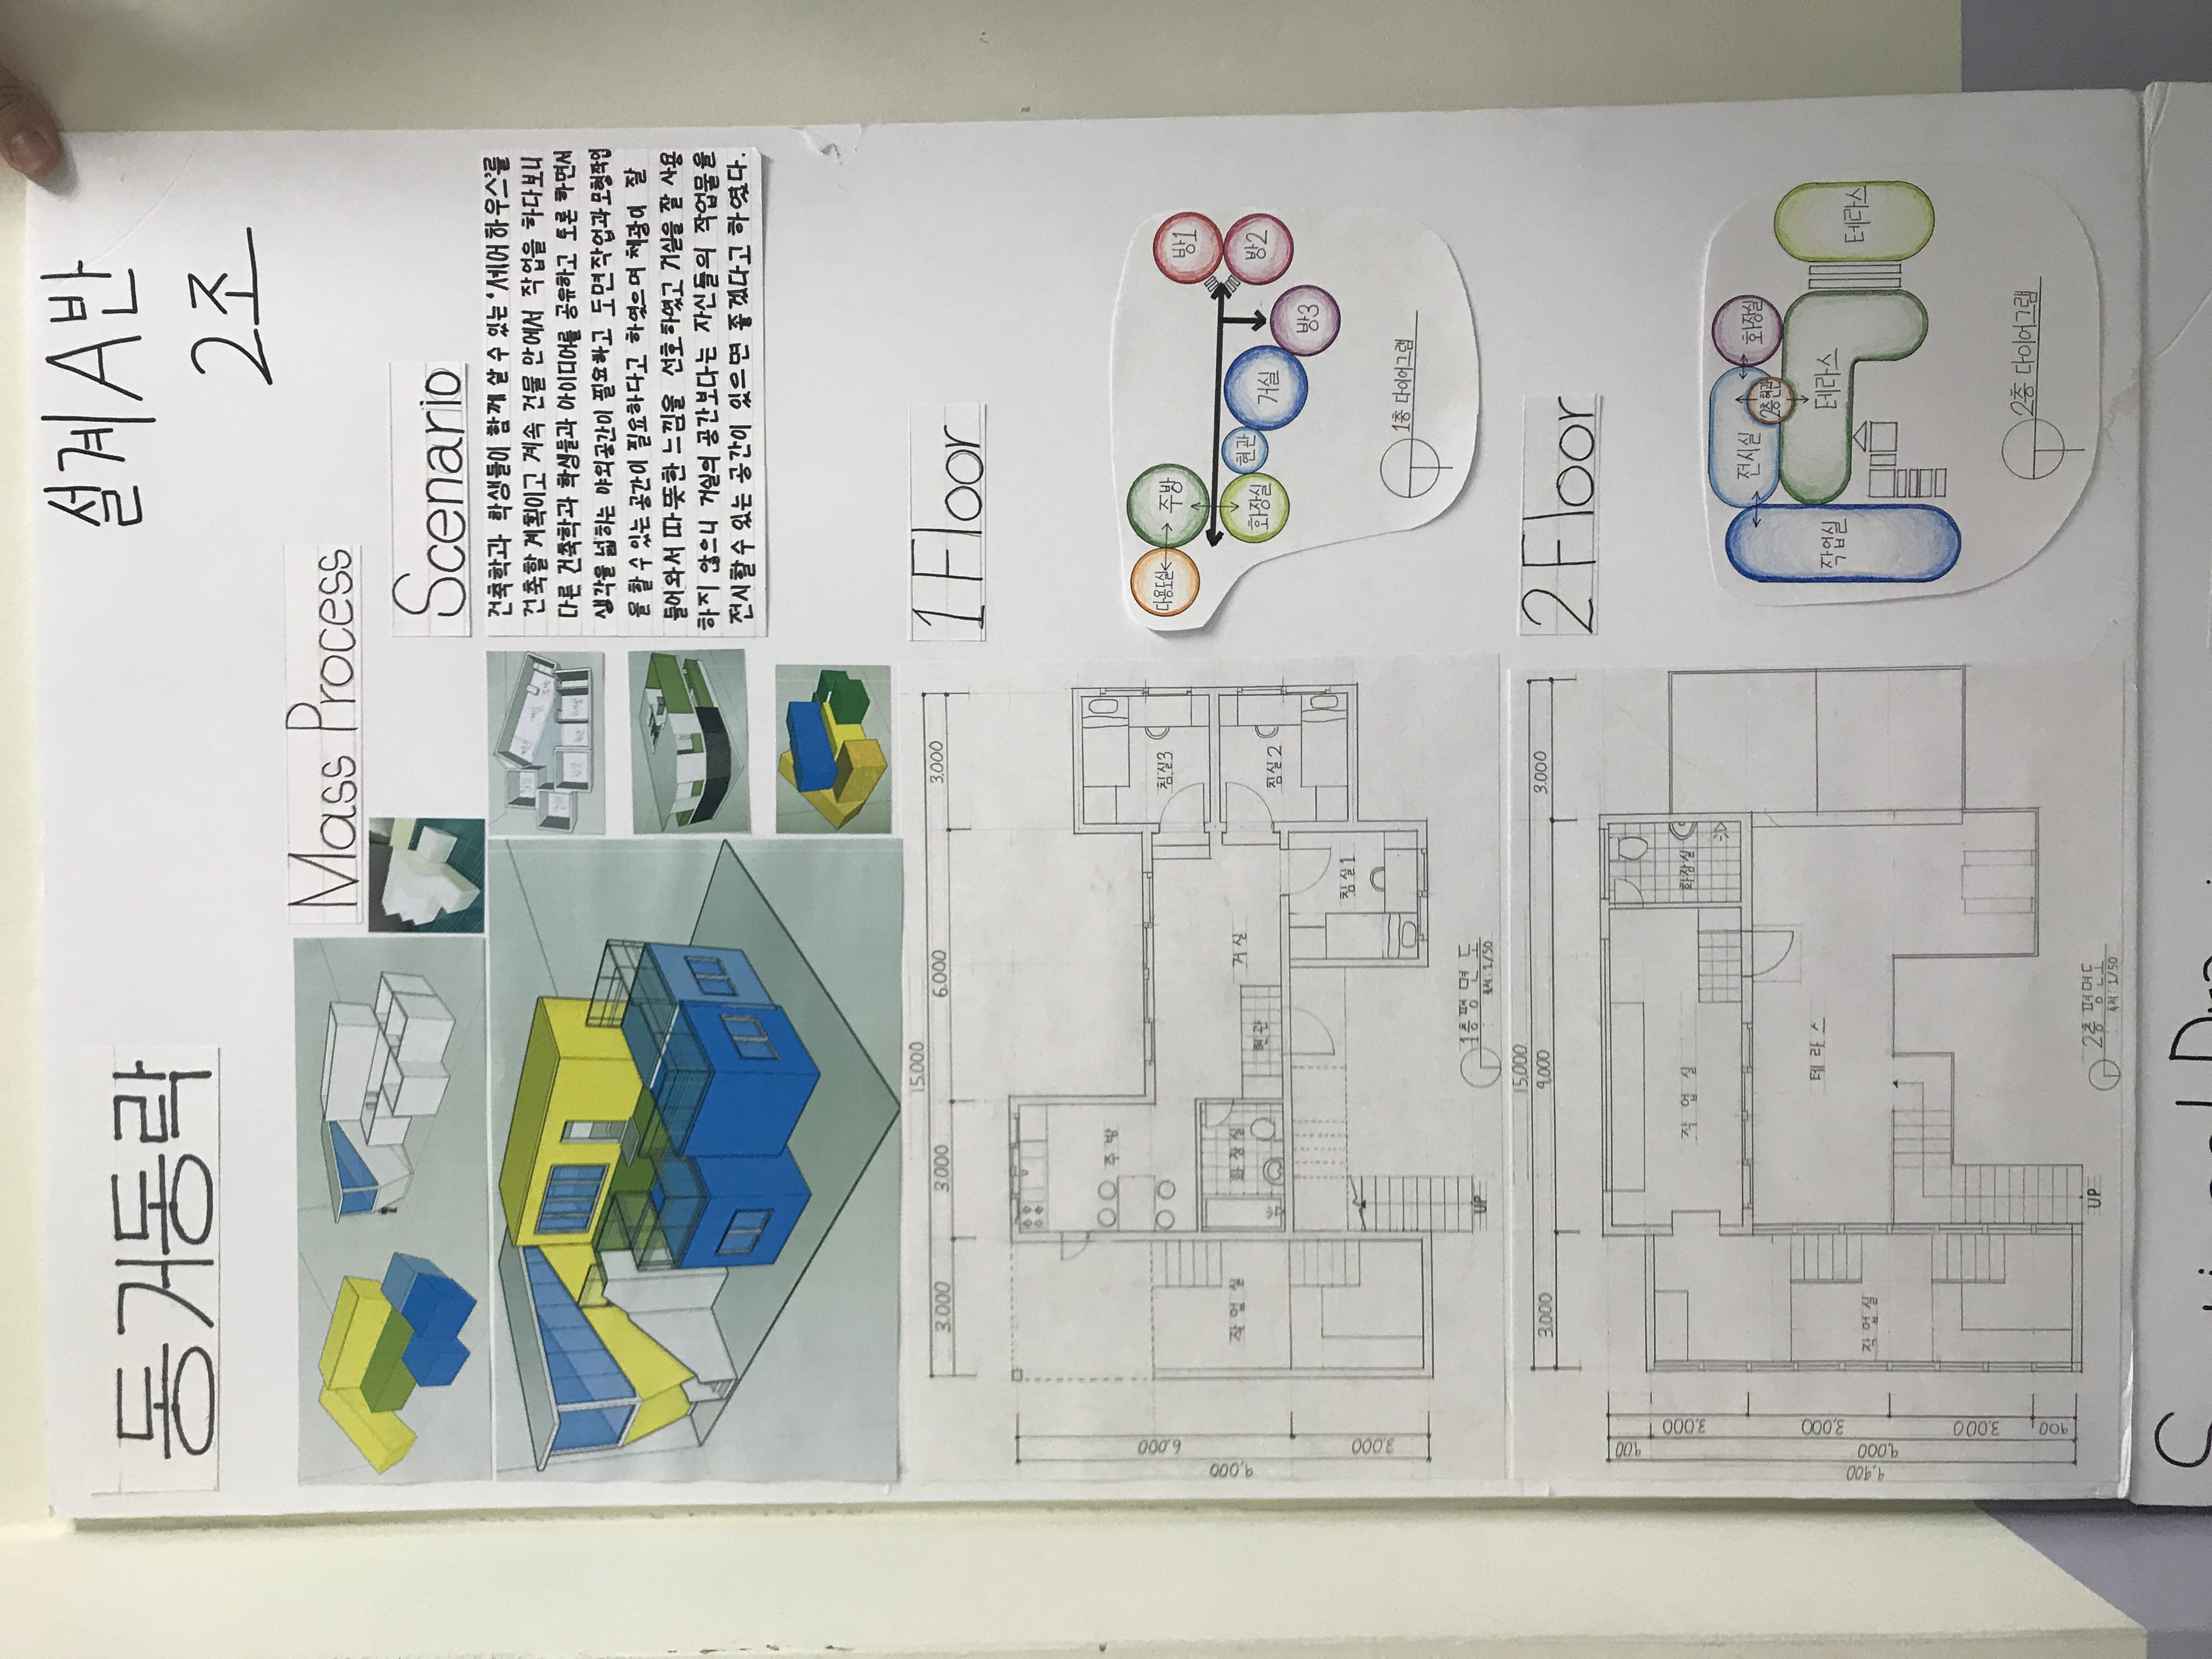 동거동락
설계 A반
2조
Mass Process
Scenario
건축학과 학생들이 함께 살 수 있는 '세어하우스'를
건축할 계획이고 계속 건물 안에서 작업을 하다보니
다른 건축학과 학생들과 아이디어를 공유하고 토론 하면서
생각을 넓히는 야외공간이 필요하고 도면작업과 모형작업
을 할 수 있는 공간이 필요하다고 하였으며 채광이 잘
들어와서 따뜻한 느낌을 선호하였고 거실을 잘 사용
하지 않으니 거실의 공간보다는 자신들의 작업물을
전시할 수 있는 공간이 있으면 좋겠다고 하였다.
1 Floor
15.000
3.000 3.000 6.000 3.000
9,000
6.000
3.000
주방
침실3
작업실
화장실
현관
거실
침실2
침실1
UP
1층평면도
축척: 1/50
다용도실
주방
방1
화장실
현관
거실
방2
방3
1층 다이어그램
2 Floor
15,000
3.000 9,000 3.000
900
3,000
3,000
3,000
900
9,900
9,000
작업실
화장실
테라스
작업실
UP
2층 평면도
축척: 1/50
전시실
화장실
2층현관
작업실
테라스
테라스
2층 다이어그램